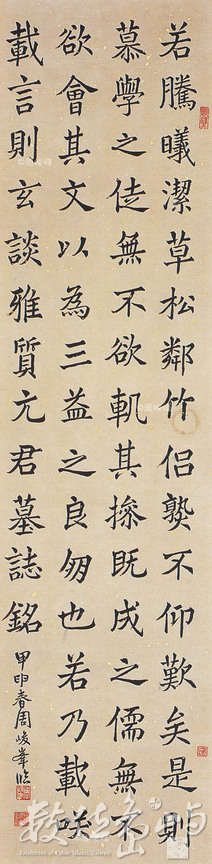 若騰曦潔草松鄰竹侶熟不仰歎矣是則
慕學之徒無不欲軌其操既成之儒無不
欲會其文以為三益之良朋也若乃載咲
載言則玄談雅質元君墓誌銘
甲申春周峻峯臨
數位島嶼
Landscape of Cyber Island, Taiwan